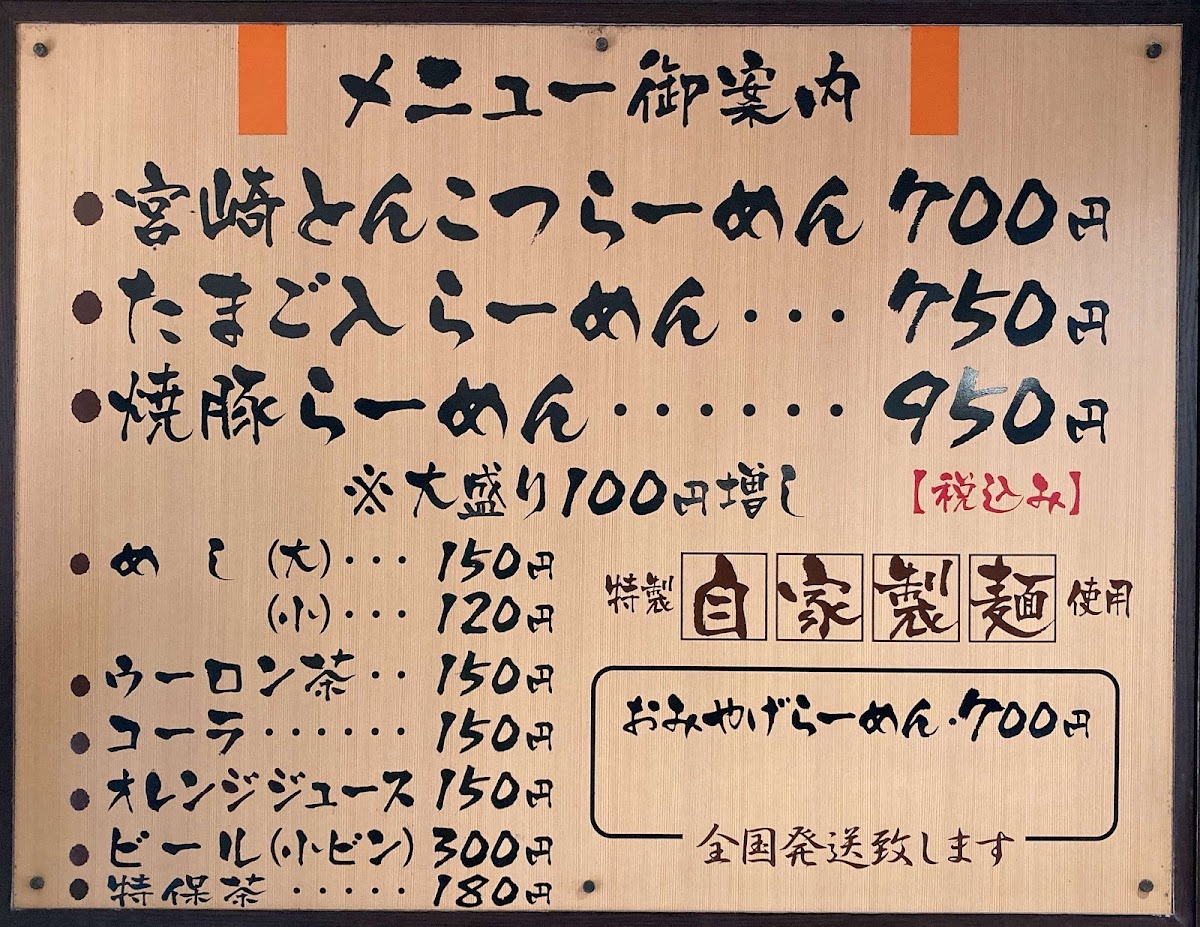 メニュー御案内
●宮崎とんこつらーめん 700円
●たまご入らーめん・・・ 750円
●焼豚らーめん・・・・・・ 950円
※大盛り100円増し 【税込み】
●めし(大)・・・ 150円
(小)・・・ 120円
●ウーロン茶・・ 150円
●コーラ・・・・・・ 150円
●オレンジジュース 150円
●ビール(小ビン) 300円
●特保茶・・・・・ 180円
特製 自家製麺 使用
おみやげらーめん・700円
全国発送致します